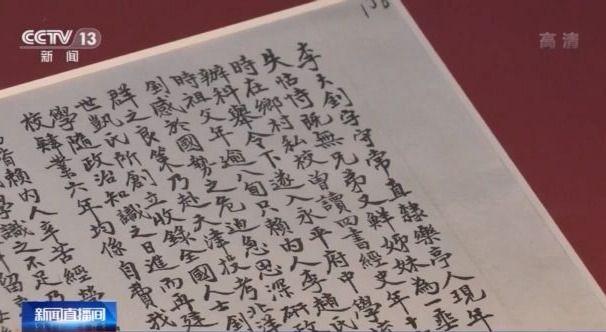 CCTV 13
新闻
高清
李大釗字守常直隸樂亭人現年
失怙恃既無兄弟又鮮姊妹為一垂
時在鄉村私校曾讀四書經史年十
辦科舉令下遂入永平府中學
時祖父年逾八旬只賴內人李趙氏
釗感於國勢之危迫急思深研政
群之良策乃赴天津投考北洋
世凱氏所創立收錄全國人士釗
學隨政治知識之日進而再建
校肄業六年均係自費我
皆賴內人辛苦經營
學識之不足乃
留
新闻直播间